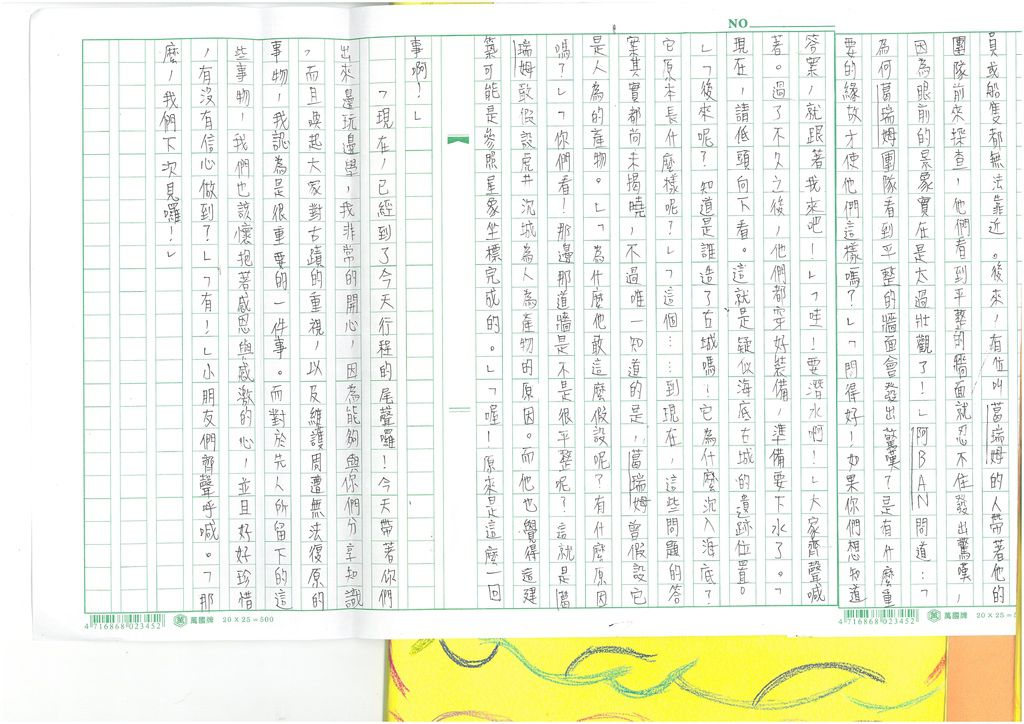 員或船隻都無法靠近。後來，有位叫葛瑞姆的人帶著他的
團隊前來探查，他們看到平整的牆面就忍不住發出驚嘆，
因為眼前的景象實在是太過壯觀了！」阿BAN問道：「
為何葛瑞姆團隊看到平整的牆面會發出驚嘆？是有什麼重
要的緣故才使他們這樣嗎？」「問得好！如果你們想知道
NO
答案，就跟著我來吧！」「哇！要潛水啊！」大家齊聲喊
著。過了不久之後，他們都穿好裝備，準備要下水了。「
現在，請低頭向下看。這就是疑似海底古城的遺跡位置。
」「後來呢？知道是誰造了古城嗎？它為什麼沉入海底？
它原本長什麼樣呢？」「這個……到現在，這些問題的答
案其實都尚未揭曉，不過唯一知道的是，葛瑞姆曾假設它
是人為的產物。」「為什麼他敢這麼假設呢？有什麼原因
嗎？」「你們看！那邊那道牆是不是很平整呢？這就是葛
瑞姆敢假設虎井沉城為人為產物的原因。而他也覺得這建
築可能是參照星象坐標完成的。」「喔！原來是這麼一回
事啊！」
「現在，已經到了今天行程的尾聲囉！今天帶著你們
出來邊玩邊學，我非常的開心，因為能夠與你們分享知識
，而且喚起大家對古蹟的重視，以及維護周遭無法復原的
事物，我認為是很重要的一件事。而對於先人所留下的這
些事物，我們也該懷抱著感恩與感激的心，並且好好珍惜
，有沒有信心做到？」「有！」小朋友們齊聲呼喊。「那
麼，我們下次見囉！」
4 716868 023452
萬國牌 20 X 25 = 500
4 716868 023452
萬國牌 20 X 25